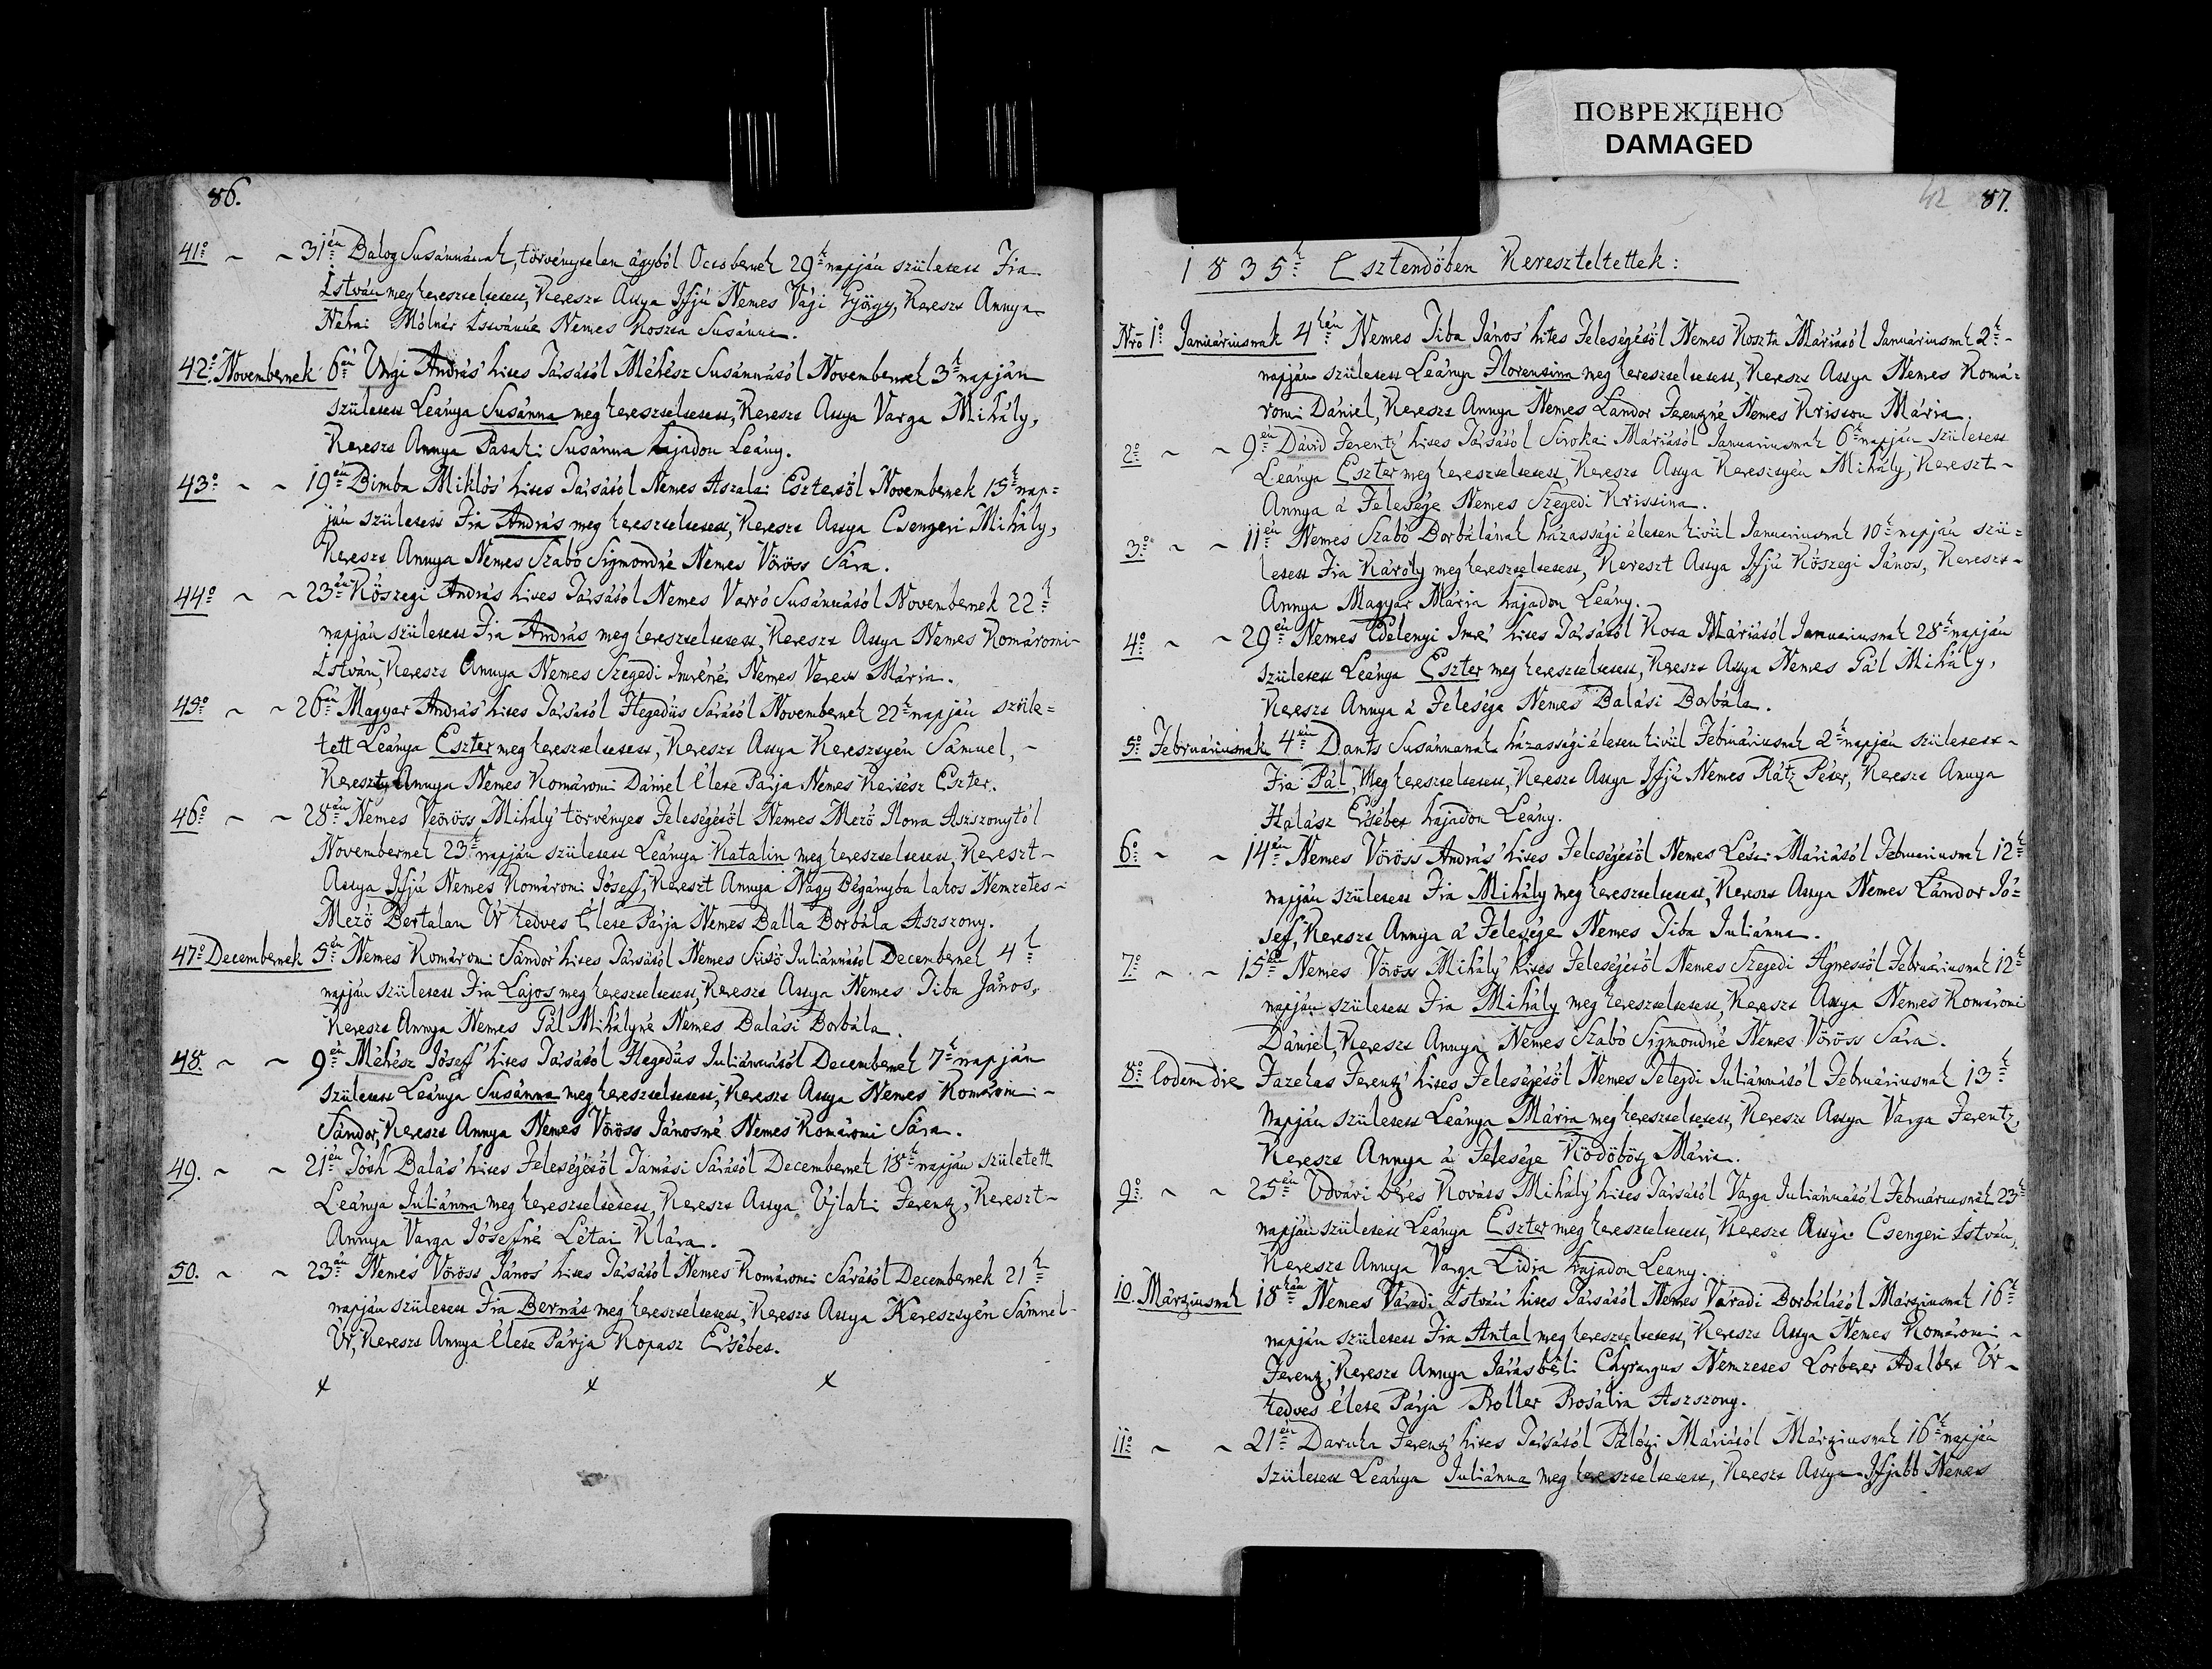 ПОВРЕЖДЕНО
DAMAGED
86.
41º ~ ~ 31én Balog Susánnának, törvénytelen ágyból Octobernek 29k napján született Fia
István meg kereszteltetett, Kereszt Attya Ifjú Nemes Vági György, Kereszt Annya
Néhai Mólnár Istvánné Nemes Koszta Susánna.
42º Novembernek 6án Ungi András' hites Társától Méhész Susánnától Novembernek 3k napján
született Leánya Susánna meg kereszteltetett, Kereszt Attya Varga Mihály,
Kereszt Annya Pataki Susánna hajadon Leány.
43º ~ ~ 19én Bimba Miklós' hites Társától Nemes Aszalai Esztertől Novembernek 15k nap=
ján született Fia András meg kereszteltetett, Kereszt Attya Csengeri Mihály,
Kereszt Annya Nemes Szabó Sigmondné Nemes Vöröss Sára.
44º ~ ~ 23án Kőszegi András hites Társától Nemes Varró Susánnától Novembernek 22k
napján született Fia András meg kereszteltetett, Kereszt Attya Nemes Komáromi-
István, Kereszt Annya Nemes Szegedi Imréné Nemes Veress Mária.
45º ~ ~ 26án Magyar András' hites Társától Hegedüs Sárától Novembernek 22k napján szüle=
tett Leánya Eszter meg kereszteltetett, Kereszt Attya Keresztyén Sámuel, -
Kereszt Annya Nemes Komáromi Dániel Élete Párja Nemes Kertész Eszter.
46º ~ ~ 28án Nemes Veöröss Mihály' törvényes Feleségétől Nemes Mező Ilona Aszszonytól
Novembernek 23k napján született Leánya Katalin meg kereszteltetett, Kereszt-
Attya Ifjú Nemes Komáromi Jósef, Kereszt Annya Nagy Bégányba lakos Nemzetes-
Mező Bertalan Úr kedves Élete Párja Nemes Balla Borbála Aszszony.
47º Decembernek 5én Nemes Komáromi Sándor hites Társától Nemes Sütő Juliánnától Decembernek 4k
napján született Fia Lajos meg kereszteltetett, Kereszt Attya Nemes Tiba János,
Kereszt Annya Nemes Pál Mihályné Nemes Balási Borbála.
48. ~ ~ 9én Méhész Jósef' hites Társától Hegedűs Juliánnától Decembernek 7k napján
született Leánya Susánna meg kereszteltetett, Kereszt Attya Nemes Komáromi-
Sándor, Kereszt Annya Nemes Vöröss Jánosné Nemes Komáromi Sára.
49. ~ ~ 21én Tóth Balás' hites Feleségétől Tamási Sárától Decembernek 18k napján született
Leánya Juliánna meg kereszteltetett, Kereszt Attya Ujlaki Ferentz, Kereszt-
Annya Varga Jósefné Létai Klára.
50. ~ ~ 23án Nemes Vöröss János' hites Társától Nemes Komáromi Sárától Decembernek 21k
napján született Fia Bernát meg kereszteltetett, Kereszt Attya Keresztyén Sámuel-
Úr, Kereszt Annya Élete Párja Kopasz Ersébet.
x x x
42 87.
1835k Esztendőben Kereszteltettek:
Nrō 1º Januáriusnak 4kén Nemes Tiba János' hites Feleségétől Nemes Koszta Máriától Januáriusnak 2k-
napján született Leánya Florentina meg kereszteltetett, Kereszt Attya Nemes Komá=
romi Dániel, Kereszt Annya Nemes Lándor Ferentzné Nemes Kriston Mária.
2º ~ ~ 9én Dávid Ferentz' hites Társától Siroka Máriától Januariusnak 6k napján született
Leánya Eszter meg kereszteltetett, Kereszt Attya Keresztyén Mihály, Kereszt-
Annya á Felesége Nemes Szegedi Kristina.
3º ~ ~ 11én Nemes Szabó Borbálának házassági életen kivül Januariusnak 10k napján szü=
letett Fia Károly meg kereszteltetett, Kereszt Attya Ifjú Kőszegi János, Kereszt-
Annya Magyar Mária hajadon Leány.
4º ~ ~ 29én Nemes Edelenyi Imre' hites Társától Kosa Máriától Januariusnak 28k napján
született Leánya Eszter meg kereszteltetett, Kereszt Attya Nemes Pál Mihály,
Kereszt Annya á Felesége Nemes Balási Borbála.
5º Februáriusnak 4én Dants Susánnának házassági életen kivül Februáriusnak 2k napján született-
Fia Pál, Meg kereszteltetett, Kereszt Attya Ifjú Nemes Rátz Péter, Kereszt Annya
Halász Ersébet hajadon Leány.
6º ~ ~ 14én Nemes Vöröss András' hites Feleségétől Nemes Létai Máriától Februariusnak 12k
napján született Fia Mihály meg kereszteltetett, Kereszt Attya Nemes Lándor Jó=
sef, Kereszt Annya á Felesége Nemes Tiba Julianna.
7º ~ ~ 15én Nemes Vöröss Mihály' hites Feleségétől Nemes Szegedi Ágnestől Februáriusnak 12k
napján született Fia Mihály meg kereszteltetett, Kereszt Attya Nemes Komáromi
Dániel, Kereszt Annya Nemes Szabó Sigmondné Nemes Vöröss Sára.
8º Eodem die Fazekas Ferentz' hites Feleségétől Nemes Telegdi Juliánnától Februáriusnak 13k
Napján született Leánya Mária meg kereszteltetett, Kereszt Attya Varga Ferentz,
Kereszt Annya á Felesége Ködöbötz Mária.
9º ~ ~ 25én Udvári béres Kováts Mihály' hites Társától Varga Juliánnától Februáriusnak 23k
napján született Leánya Eszter meg kereszteltetett, Kereszt Attya Csengeri István,
Kereszt Annya Varga Lidia hajadon Leany.
10. Mártziusnak 18kán Nemes Váradi István' hites Társától Nemes Váradi Borbálától Mártziusnak 16k
napján született Fia Antal meg kereszteltetett, Kereszt Attya Nemes Komáromi -
Ferentz, Kereszt Annya Járásbéli Chyrurgus Nemzetes Lorberer Adalbert Úr-
kedves Élete Párja Roller Rosália Aszszony.
11º ~ ~ 21én Daruka Ferentz' hites Társától Pálótzi Máriától Mártziusnak 16k napján
Született Leánya Juliánna meg kereszteltetett, Kereszt Attya Ifjabb Nemes